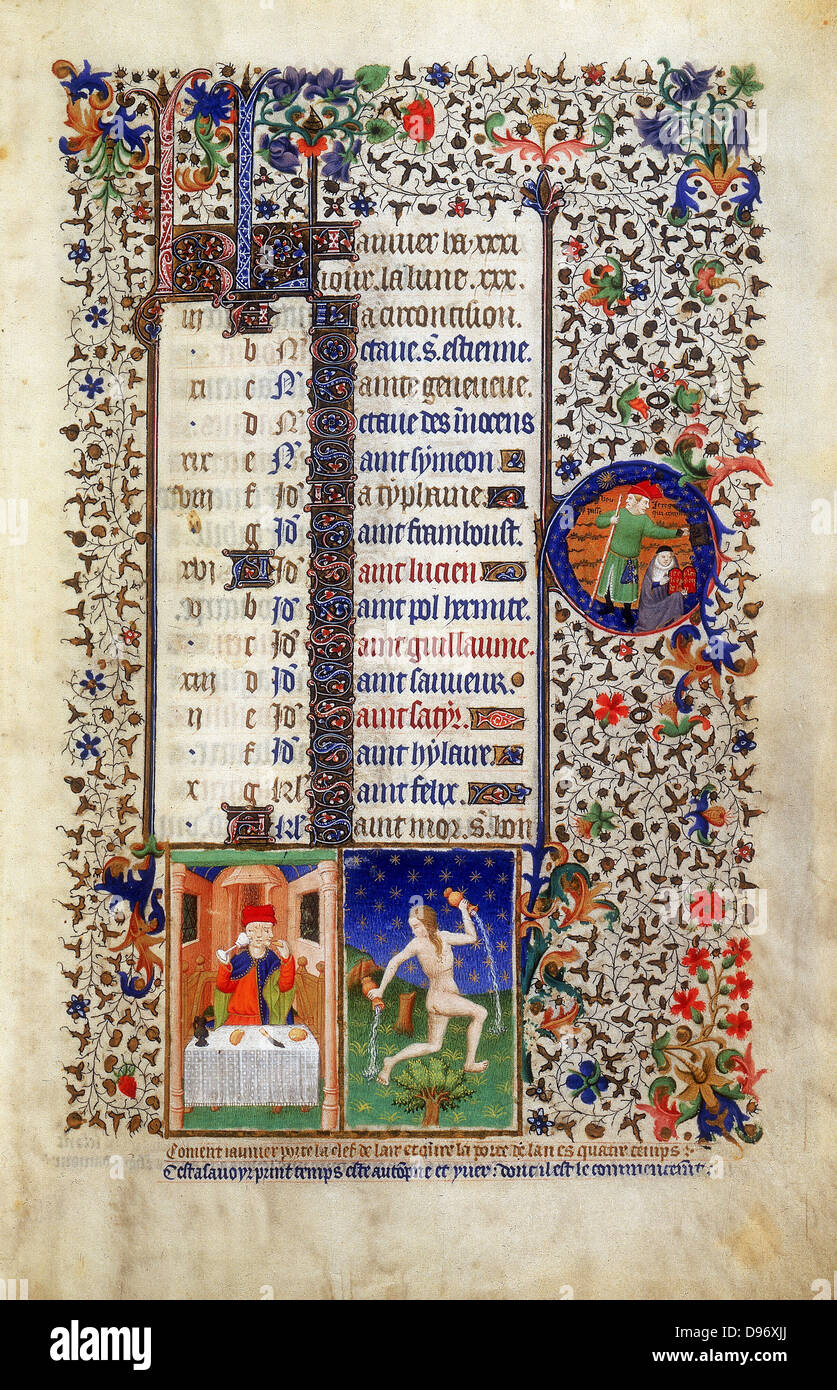 KL Januier ha xxxi
iour. la lune. xxx.
iii A La circoncision.
b N Octaue. s. estienne.
xi c N Sainte geneueue.
d N Octaue des inocens
xix e N Saint symeon.
viii f Id La typhaine.
g Id Saint frambourt.
xvi A Id Saint lucien
v b Id Saint pol hermite.
c Id Saint guillaume.
xiii d Id Saint sauueur.
ii e Id Saint satyr.
f Id Saint hylaire
x g kl Saint felix.
A kl Saint mor. s. bon
Coment ianuier porte la clef de lair et euure la porte de lan es quatre temps
Cest a sauoyr printemps este autompne et yuer: dont il est le commencement
alamy
Image ID: D96XJJ
www.alamy.com